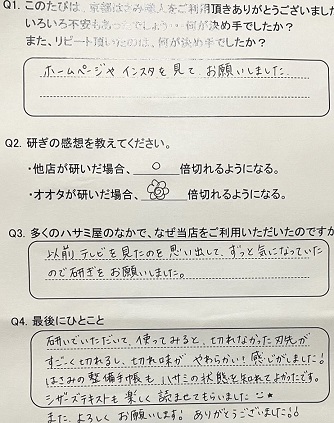 Q1. このたびは、京都はさみ職人をご利用頂きありがとうございました
いろいろ不安もあったでしょう…何が決め手でしたか?
また、リピート頂いたのは、何が決め手でしたか?
ホームページや インスタを 見て お願いしました
Q2. 研ぎの感想を教えてください。
・他店が研いだ場合、 ○ 倍切れるようになる。
・オオタが研いだ場合、 倍切れるようになる。
Q3. 多くのハサミ屋のなかで、なぜ当店をご利用いただいたのですか
以前 テレビを見たのを 思い出して、ずっと気になっていた
ので研ぎを お願いしました。
Q4. 最後にひとこと
研いでいただいて、使ってみると、切れなかった刃先が
すごく切れるし、切れ味が やわらかい!感じがしました!
はさみの整備手帳も ハサミの状態を知れてよかったです。
シザーズテキストも 楽しく 読ませてもらいました
また、よろしく お願いします! ありがとうございました!!